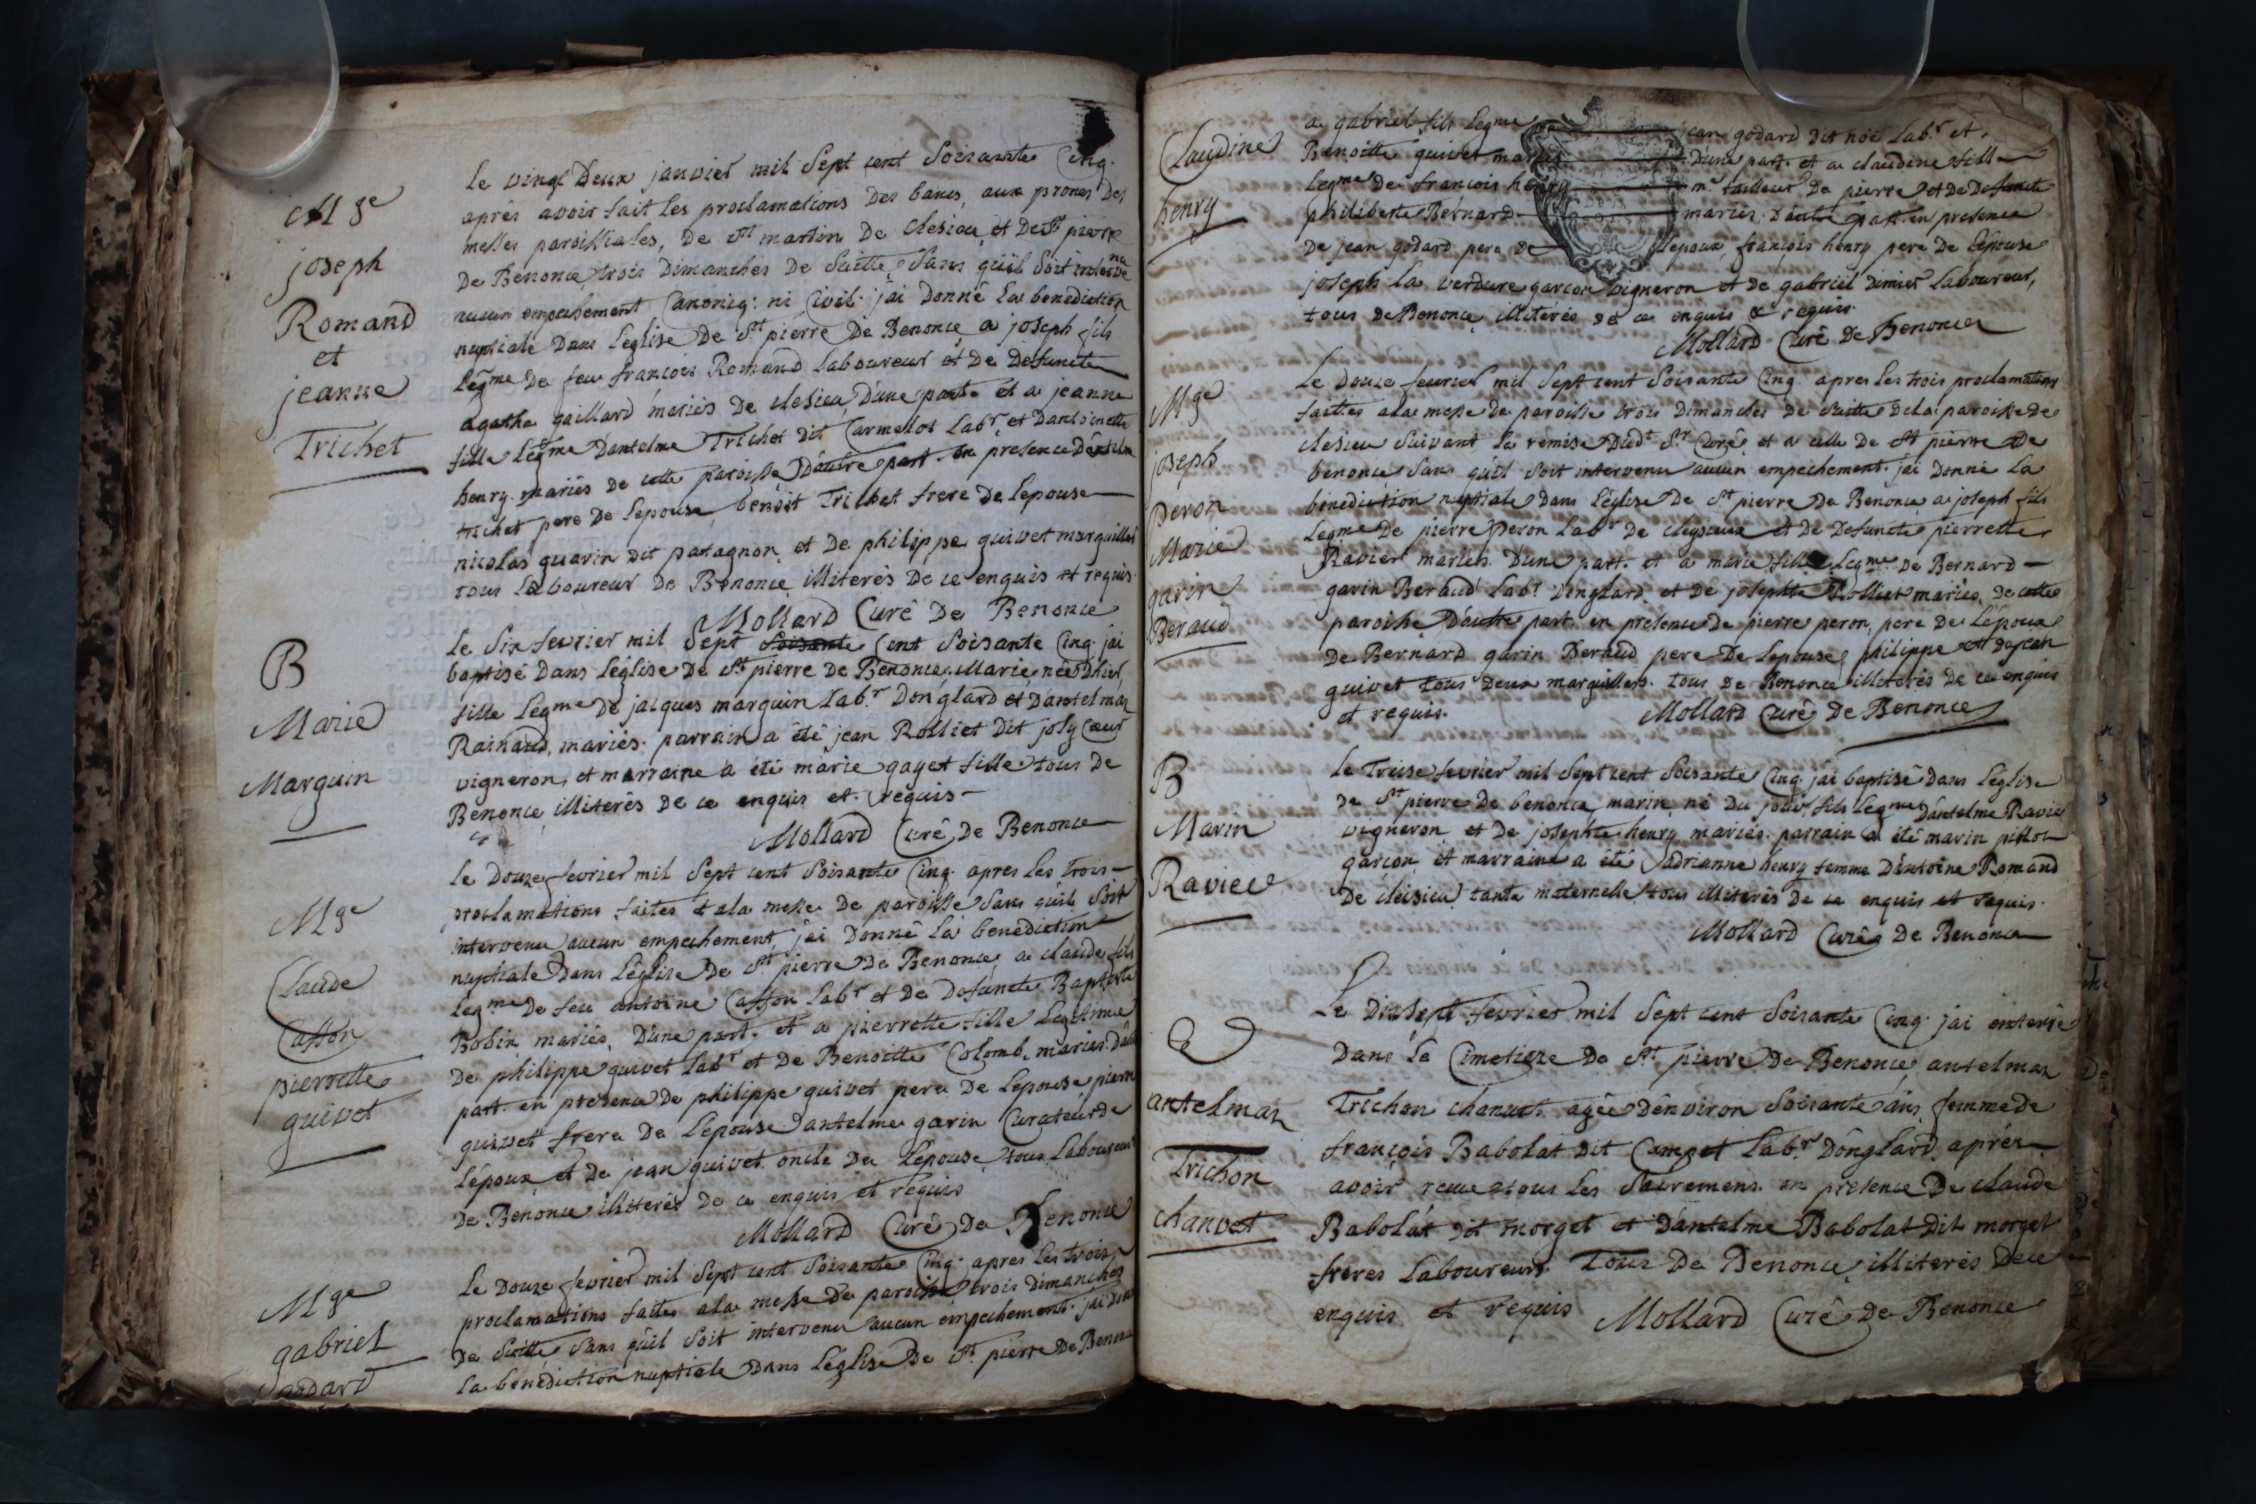 Mge
joseph
Romand
et
jeanne
Trichet
le vingt Deux janvier mil Sept cent Soixante Cinq.
aprés avoir fait les proclamations des bancs, aux prones des
messes paroissiales, de st martin de clesieu, et de st pierre
de Benonce, trois dimanches de Suitte, Sans qu'il Soit interve nu
aucun empechement Canoniq. ni Civil. jai Donné la benediction
nuptiale Dans léglise De St pierre De Benonce a joseph fils
legme De feu françois Romand laboureur et de defuncte
agathe gaillard mariés de clesieu, D'une part. et a jeanne
fille legme Dantelme Trichet dit Carmelot labr et Dantoinette
henry. mariés de cette paroisse D'autre part. en presence Dantelme
trichet pere De lepouse, benoit Trichet frere de lepouse
nicolas guarin dit patagnon et de philippe quivet marguillier
tous laboureur de Benonce illiterés De ce enquis et requis.
Mollard Curé De Benonce
B
Marie
Marguin
le Six fevrier mil Sept Soixante Cent Soixante Cinq. jai
baptisé Dans léglise De St pierre de Benonce Marie née D'hier,
fille legme De jacques marguin labr Donglard et Dantelmaz
Rainaud, mariés. parrain a été jean Rolliet dit joly Cœur
vigneron, et marraine a été marie gayet fille tous de
Benonce illiterés de ce enquis et requis
Mollard Curé De Benonce
Mge
Claude
Casson
pierrette
quivet
le Douze fevrier mil Sept cent Soixante Cinq. apres les trois
proclamations faites a la messe de paroisse Sans qu'il Soit
intervenu aucun empechement, jai Donné la benediction
nuptiale Dans léglise De St pierre De Benonce a claude fils
legme De feu antoine Casson labr et De Defuncte Baptiste
Bobin mariés, D'une part. et a pierrette fille legitime
de philippe quivet labr et De Benoitte Colomb. mariés D'autre
part. en presence De philippe quivet pere De lepouse, pierre
quivet frere De lepouse antelme garin Curateur de
lépoux et de jean quivet oncle De lepouse tous laboureurs
De Benonce illiterés de ce enquis et requis
Mollard Curé De Benonce
Mge
gabriel
godard
le Douze fevrier mil Sept cent Soixante Cinq. apres les trois
proclamations faites a la messe De paroisse trois dimanches
De Suitte Sans qu'il Soit intervenu aucun empechement. jai Donné
la benediction nuptiale Dans léglise De St pierre De Benonce
Claudine
henry
a gabriel fils legme jean godard dit noé labr et
Benoitte quivet mariés D'une part. et a claudine fille
legme De francois henry mr tailleur De pierre et De Defuncte
philiberte Bernard mariés D'autre part. en presence
De jean godard pere De lepoux, françois henry pere De lépouse
joseph la verdure garçon vigneron et de gabriel dimier laboureur,
tous De Benonce illiterés de ce enquis & requis.
Mollard Curé De Benonce
Mge
joseph
peron
Marie
garin
Beraud
Le Douze fevrier mil Sept cent Soixante Cinq. apres les trois proclamations
faittes a la messe de paroisse trois Dimanches De Suitte De la paroisse de
clesieu Suivant la remise Dudt Sr Curé, et a celle de st pierre De
benonce Sans qu'il Soit intervenu aucun empechement. jai Donné La
bénédiction nuptiale Dans léglise De St pierre De Benonce a joseph fils
legme De pierre peron labr de cleysieux et de Defuncte pierrette
Ravier mariés. D'une part. et a marie fille legme De Bernard
garin Beraud labr D'onglard, et De josephte Rolliet mariés, De cette
paroisse D'autre part. en presence De pierre peron, pere De lépoux
De Bernard garin Beraud pere De lepouse, philippe et De jean
quivet tous deux marguilliers. tous de Benonce illiterés de ce enquis
et requis.
Mollard Curé De Benonce
B
Marin
Ravier
le Treize fevrier mil Sept cent Soixante Cinq. jai baptisé dans léglise
de St pierre de benonce, marin né du jour fils legme Dantelme Ravier
vigneron et de josephte henry mariés. parrain a été marin pittion
garçon, et marraine a été adrianne henry femme D'antoine Romand
De cleisieu tante maternelle tous illiterés De ce enquis et requis.
Mollard Curé De Benonce
antelmaz
Trichon
chanvet
Le Dix Sept fevrier mil Sept cent Soixante Cinq. jai enterré
Dans le Cimetiere De St pierre De Benonce, antelmaz
Trichon chanvet agée D'environ Soixante ans, femme de
françois Babolat dit Campet labr D'onglard, aprés
avoir, recue tous les Sacremens. en presence De claude
Babolat dit morget et D'antelme Babolat dit morget
freres laboureurs. Tous De Benonce, illiterés De ce
enquis et requis Mollard Curé De Benonce